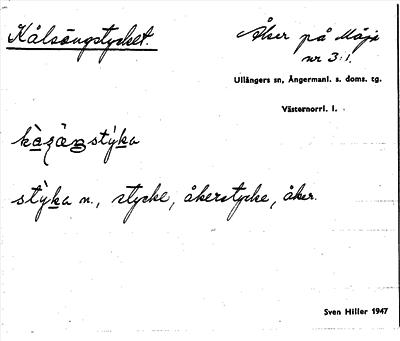 Kålsängstycket.
Åker på Mäja
nr 3:1.
Ullångers sn, Ångermanl. s. doms. tg.
Västernorrl. l.
stýka n., stycke, åkerstycke, åker.
Sven Hiller 1947